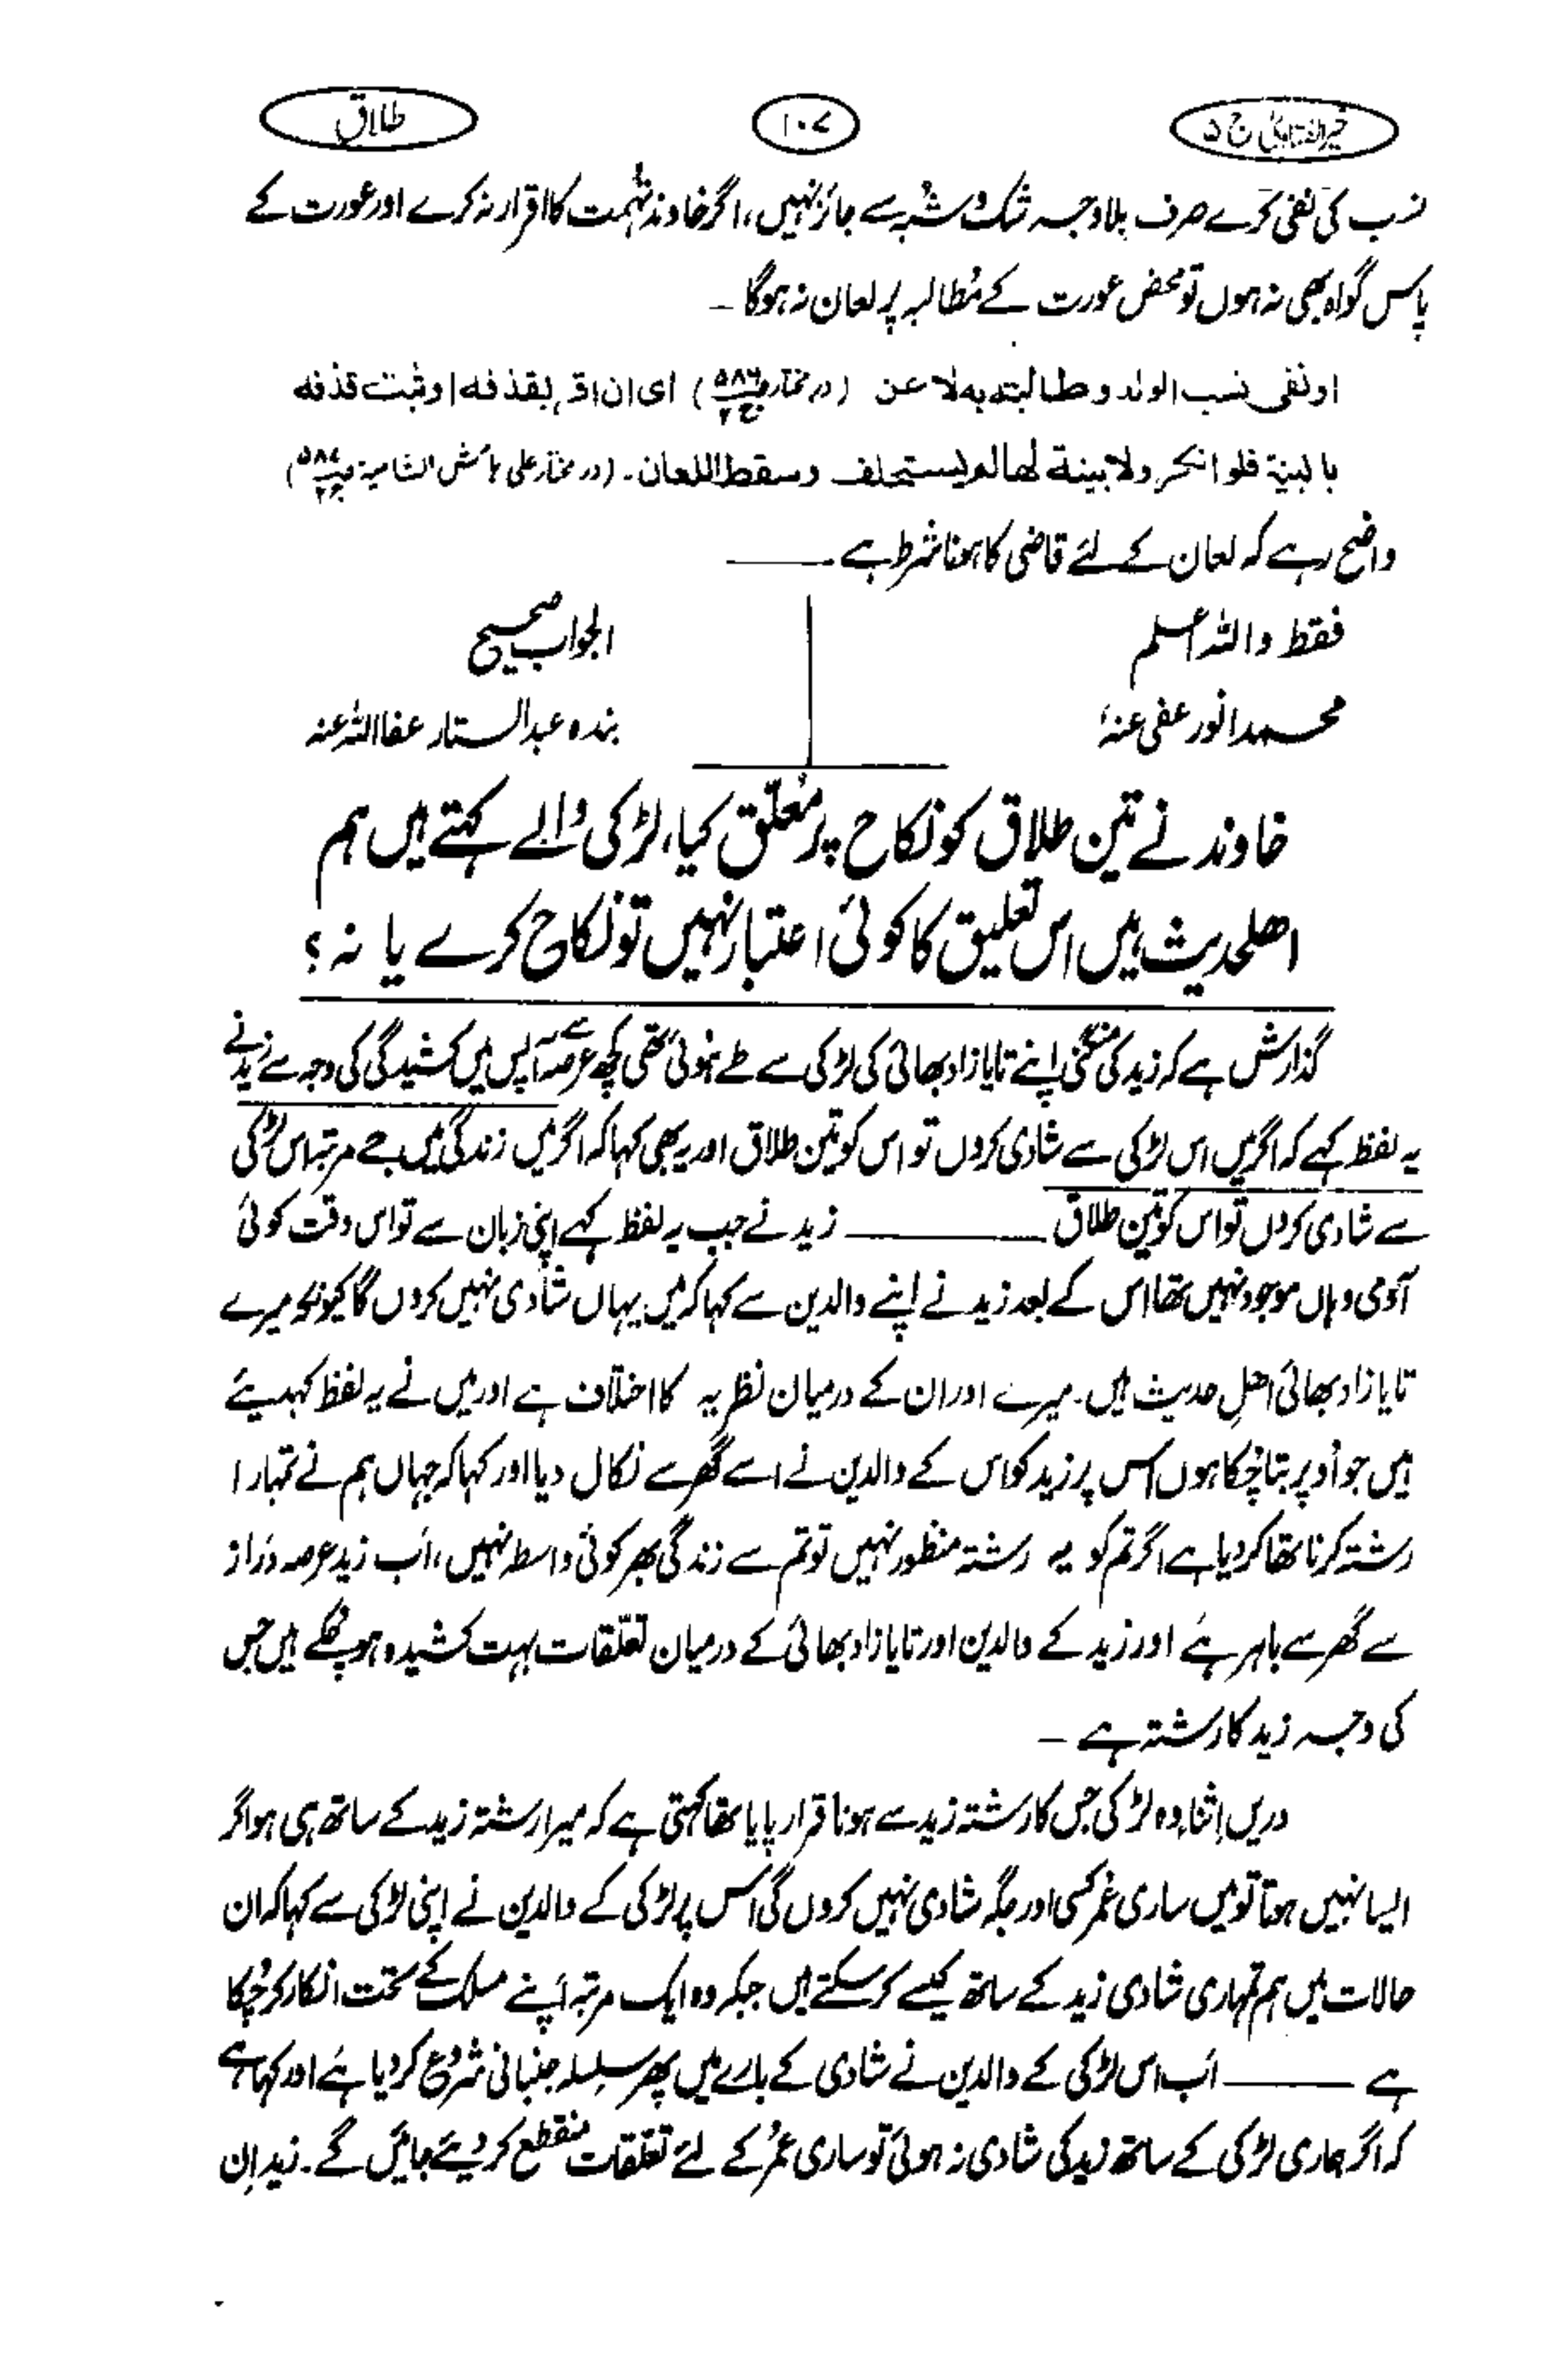 خیر الفتاویٰ ج ۵
۱۰۷
طلاق
نسب کی نفی کرے صرف بلا وجہ شک و شبہ سے جائز نہیں، اگر خاوند تہمت کا اقرار نہ کرے اور عورت کے
پاس گواہ بھی نہ ہوں تو محض عورت کے مُطالبہ پر لعان نہ ہوگا ۔
او نفی نسب الولد و طالبته به لاعن (در مختار ص۵۸۶ ج۲) ای ان اقر بقذفه او ثبت قذفه
بالبینة فلو انکر ولا بینة لها لم یستحلف وسقط اللعان۔ (در مختار علی ہامش الشامیۃ ص۵۸۶ ج۲)
واضح رہے کہ لعان کے لئے قاضی کا ہونا شرط ہے ۔
فقط واللہ اعلم
محمد انور عفی عنہ
الجواب صحیح
بندہ عبدالستار عفا اللہ عنہ
خاوند نے تین طلاق کو نکاح پر مُعلّق کیا، لڑکی والے کہتے ہیں ہم
اھلحدیث ہیں اس تعلیق کا کوئی اعتبار نہیں تو نکاح کرے یا نہ ؟
گذارش ہے کہ زید کی منگنی اپنے تایا زاد بھائی کی لڑکی سے طے ہوئی تھی کچھ عرصہ سے آپس میں کشیدگی کی وجہ سے زید نے
یہ لفظ کہے کہ اگر میں اس لڑکی سے شادی کروں تو اس کو تین طلاق اور یہ بھی کہا کہ اگر میں زندگی میں جے مرتبہ اس لڑکی
سے شادی کروں تو اس کو تین طلاق ــــــــ زید نے جب یہ لفظ کہے اپنی زبان سے تو اس وقت کوئی
آدمی وہاں موجود نہیں تھا اس کے بعد زید نے اپنے والدین سے کہا کہ میں یہاں شادی نہیں کروں گا کیونکہ میرے
تایا زاد بھائی اھلِ حدیث ہیں۔ میرے اور ان کے درمیان نظریہ کا اختلاف ہے اور میں نے یہ لفظ کہہ دیئے
ہیں جو اُوپر بتا چُکا ہوں اس پر زید کو اس کے والدین نے اسے گھر سے نکال دیا اور کہا کہ جہاں ہم نے تمہارا
رشتہ کرنا تھا کر دیا ہے اگر تم کو یہ رشتہ منظور نہیں تو تم سے زندگی بھر کوئی واسطہ نہیں، اَب زید عرصہ دراز
سے گھر سے باہر ہے اور زید کے والدین اور تایا زاد بھائی کے درمیان تعلّقات بہت کشیدہ ہو چکے ہیں جس
کی وجہ زید کا رشتہ ہے ۔
دریں اِثنا، وہ لڑکی جس کا رشتہ زید سے ہونا قرار پایا تھا کہتی ہے کہ میرا رشتہ زید کے ساتھ ہی ہو اگر
ایسا نہیں ہوتا تو میں ساری عُمر کسی اور جگہ شادی نہیں کروں گی اس پر لڑکی کے والدین نے اپنی لڑکی سے کہا کہ ان
حالات میں ہم تمہاری شادی زید کے ساتھ کیسے کر سکتے ہیں جبکہ وہ ایک مرتبہ اَپنے مسلک کے تحت انکار کر چُکا
ہے ــــــــ اَب اس لڑکی کے والدین نے شادی کے بارے میں پھر سلسلہ جنبانی شروع کر دیا ہے اور کہا ہے
کہ اگر ہماری لڑکی کے ساتھ زید کی شادی نہ ہوئی تو ساری عمُر کے لئے تعلّقات منقطع کر دیئے جائیں گے۔ زید اِن